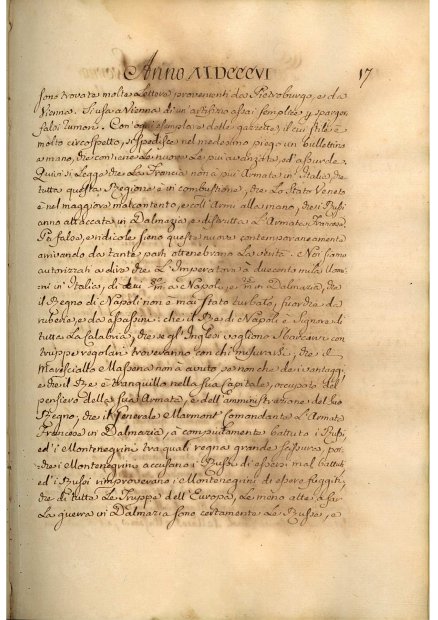 Anno MDCCCVI
17
sono trovate molte Lettere provenienti da Pietroburgo, e da
Vienna. Si usa a Vienna di un'artifizio assai semplice, p spargere
falsi rumori. Con ogni esemplare delle gazzette, il cui stile è
molto circospetto, si spedisce nel medesimo piego un bullettino
a mano, che contiene le nuove le più avanzate, ed assurde.
Quivi si legge che la Francia non à più Armata in Italia, che
tutta questa Regione è in combustione, che lo Stato Veneto
è nel maggiore malcontento, e coll'Armi alla mano, che i Russi
anno attaccata in Dalmazia e distrutta l'Armata Francese.
Per false, e ridicole sieno queste nuove contemporaneamente
arrivando da tante parti ottenebrano la verità. Noi siamo
autorizzati a dire che l'Imperatore à duecento mila Uomi
ni in Italia, di cui a Napoli, e in Dalmazia, che
il Regno di Napoli non è mai stato turbato, fuorchè da
ruberie, e da assassini: che il Re di Napoli è Signore di
tutta la Calabria, che se gl'Inglesi vogliono sbarcare con
truppe regolari troveranno con chi misurarsi, che il
Maresciallo Massena non à avuto se non che dei vantaggi,
e che il Re è tranquillo nella sua Capitale, occupato del
pensiero della sua Armata, e dell'Amministrazione del suo
Regno; che il Generale Marmont Comandante l'Armata
Francese in Dalmazia, à compiutamente battuto i Russi,
ed i Montenegrini tra quali regna grande
che i Montenegrini accusano i Russi di essersi mal battuti
ed i Russi rimproverano i Montenegrini di essere fuggiti,
che di tutte le Truppe dell'Europa, le meno atte a far
la guerra in Dalmazia sono certamente le Russe, e